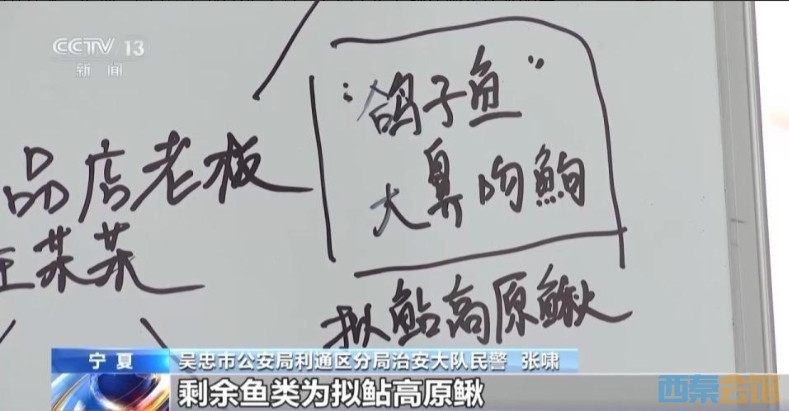 CCTV 13
新闻
"鸽子鱼"
大鼻吻鮈
品店老板
王某某
拟鲇高原鳅
宁夏 吴忠市公安局利通区分局治安大队民警 张啸
剩余鱼类为拟鲇高原鳅
西秦会馆